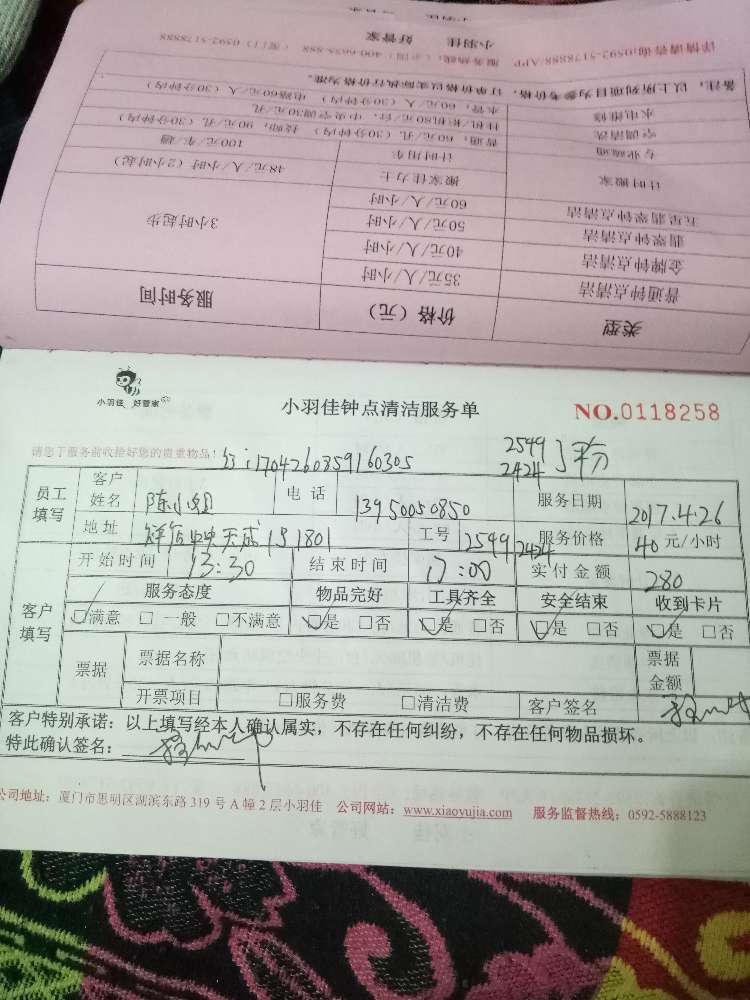 小羽佳 好管家
详情请咨询:0592-5178888/APP 服务热线:(全国) 400-6655-888 (厦门) 0592-5178888
备注:以上所列项目为参考价格,订单价格以实际执行价格为准。
水电维修 水管:60元/人(30分钟内) 电路60元/人(30分钟内)
空调清洗 挂机/柜机80元/台,中央空调30元/孔
专业疏通 普通:60元/孔(30分钟内) 技师:90元/孔(30分钟内)
计时搬家 计时用车 100元/车/趟
搬家佳力士 48元/人/小时(2小时起)
五星翡翠钟点清洁 60元/人/小时
翡翠钟点清洁 50元/人/小时 3小时起步
金牌钟点清洁 40元/人/小时
普通钟点清洁 35元/人/小时
类型 价格(元) 服务时间
小羽佳 好管家
小羽佳钟点清洁服务单 NO.0118258
请您于服务前收捡好您的贵重物品! 1704260859160305 2549 2424
员工填写 客户姓名 陈小姐 电话 13950050850 服务日期 2017.4.26
地址 1801 工号 2549,2424 服务价格 40 元/小时
开始时间 13:30 结束时间 17:00 实付金额 280
客户填写 服务态度 物品完好 工具齐全 安全结束 收到卡片
☑满意 □一般 □不满意 ☑是 □否 ☑是 □否 ☑是 □否 ☑是 □否
票据 票据名称 票据金额
开票项目 □服务费 □清洁费 客户签名
客户特别承诺:以上填写经本人确认属实,不存在任何纠纷,不存在任何物品损坏。
特此确认签名:
公司地址:厦门市思明区湖滨东路 319 号 A 幢 2 层小羽佳 公司网站:www.xiaoyujia.com 服务监督热线:0592-5888123